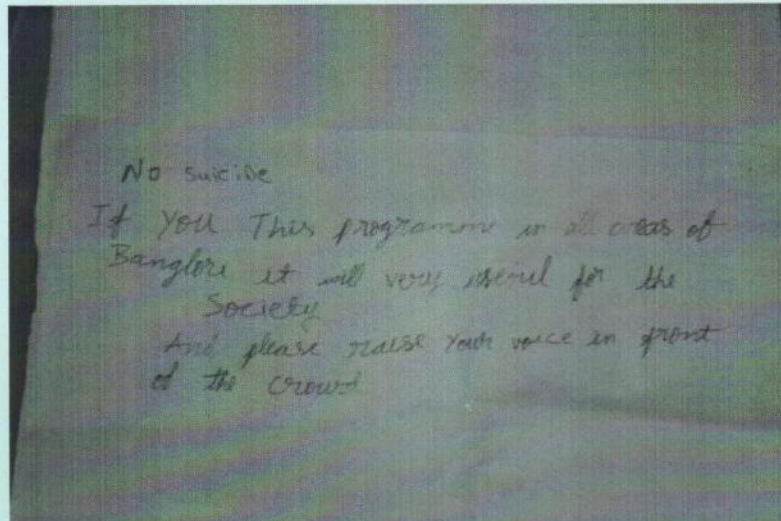 No suicide
If You This programme in all areas of
Banglore it will very useful for the
Society
And please raise Your voice in front
of the crowd